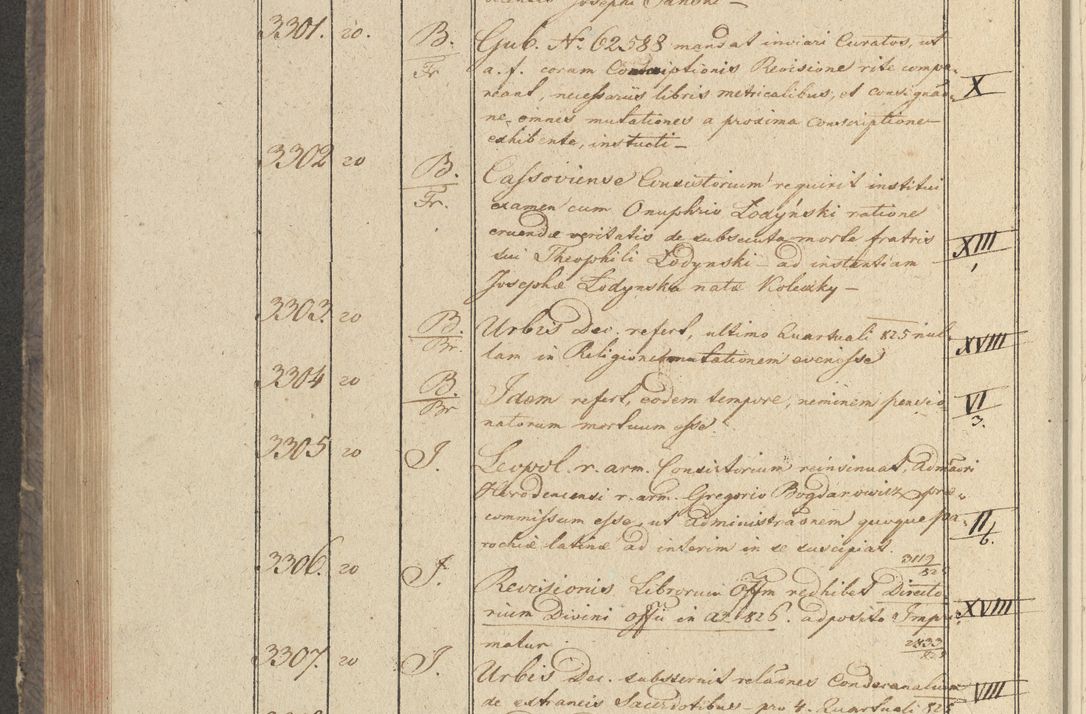 3301. 20. B. Gub. No 62588 mandat inviari Curatos, ut
Fr a. f. coram Conscriptionis Revisione rite compa-
reant, necessariis libris metricalibus, et consignao- X
ne omnes mutationes a proxima conscriptione
exhibente, instucti_
3302 20 B. Cassoviense Consistorium requirit institui
Fr. examen cum Onuphrio Lodyński ratione
eruendæ veritatis de subsecuta morte fratris XIII
sui Theophili Lodynski_ ad instantiam 1
Josephæ Lodynska natæ Koleczky_
3303. 20 B. Urbis Dec. refert, ultimo Quartuali 825 nul-
Br. lam in Religione mutationem evenisse XVIII
3304 20 B. Idem refert, eodem tempore, neminem pensio VI
Br natorum mortuum esse. 3.
3305 20 J. Leopol. r. arm. Consistorium reinsinuat,
Horodencensi r. arm. Gregorio Bogdanowicz præ-
commissum esse, ut administrāonem quoque pa- II
rochiæ latinæ ad interim in se suscipiat. 6.
3119
825
3306. 20 J. Revisionis Librorum Offm redhibet Directo
rium Divini offii in ao 826. adposito Impri- XVIII
matur 2833
825
3307. 20 J. Urbis Dec. substernit relāones Condecanalium VIII
de extraneis Sacerdotibus_ pro 4. Quartuali 825